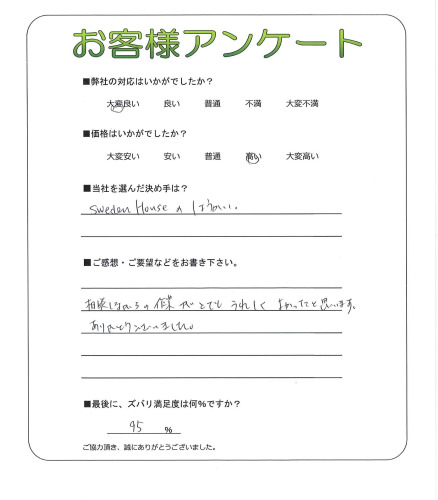 お客様アンケート
■弊社の対応はいかがでしたか？
大変良い 良い 普通 不満 大変不満
■価格はいかがでしたか？
大変安い 安い 普通 高い 大変高い
■当社を選んだ決め手は？
Sweden House の
■ご感想・ご要望などをお書き下さい。
相談しながらの作業がとてもうれしくよかったと思います。
ありがとうございました。
■最後に、ズバリ満足度は何％ですか？
95 ％
ご協力頂き、誠にありがとうございました。